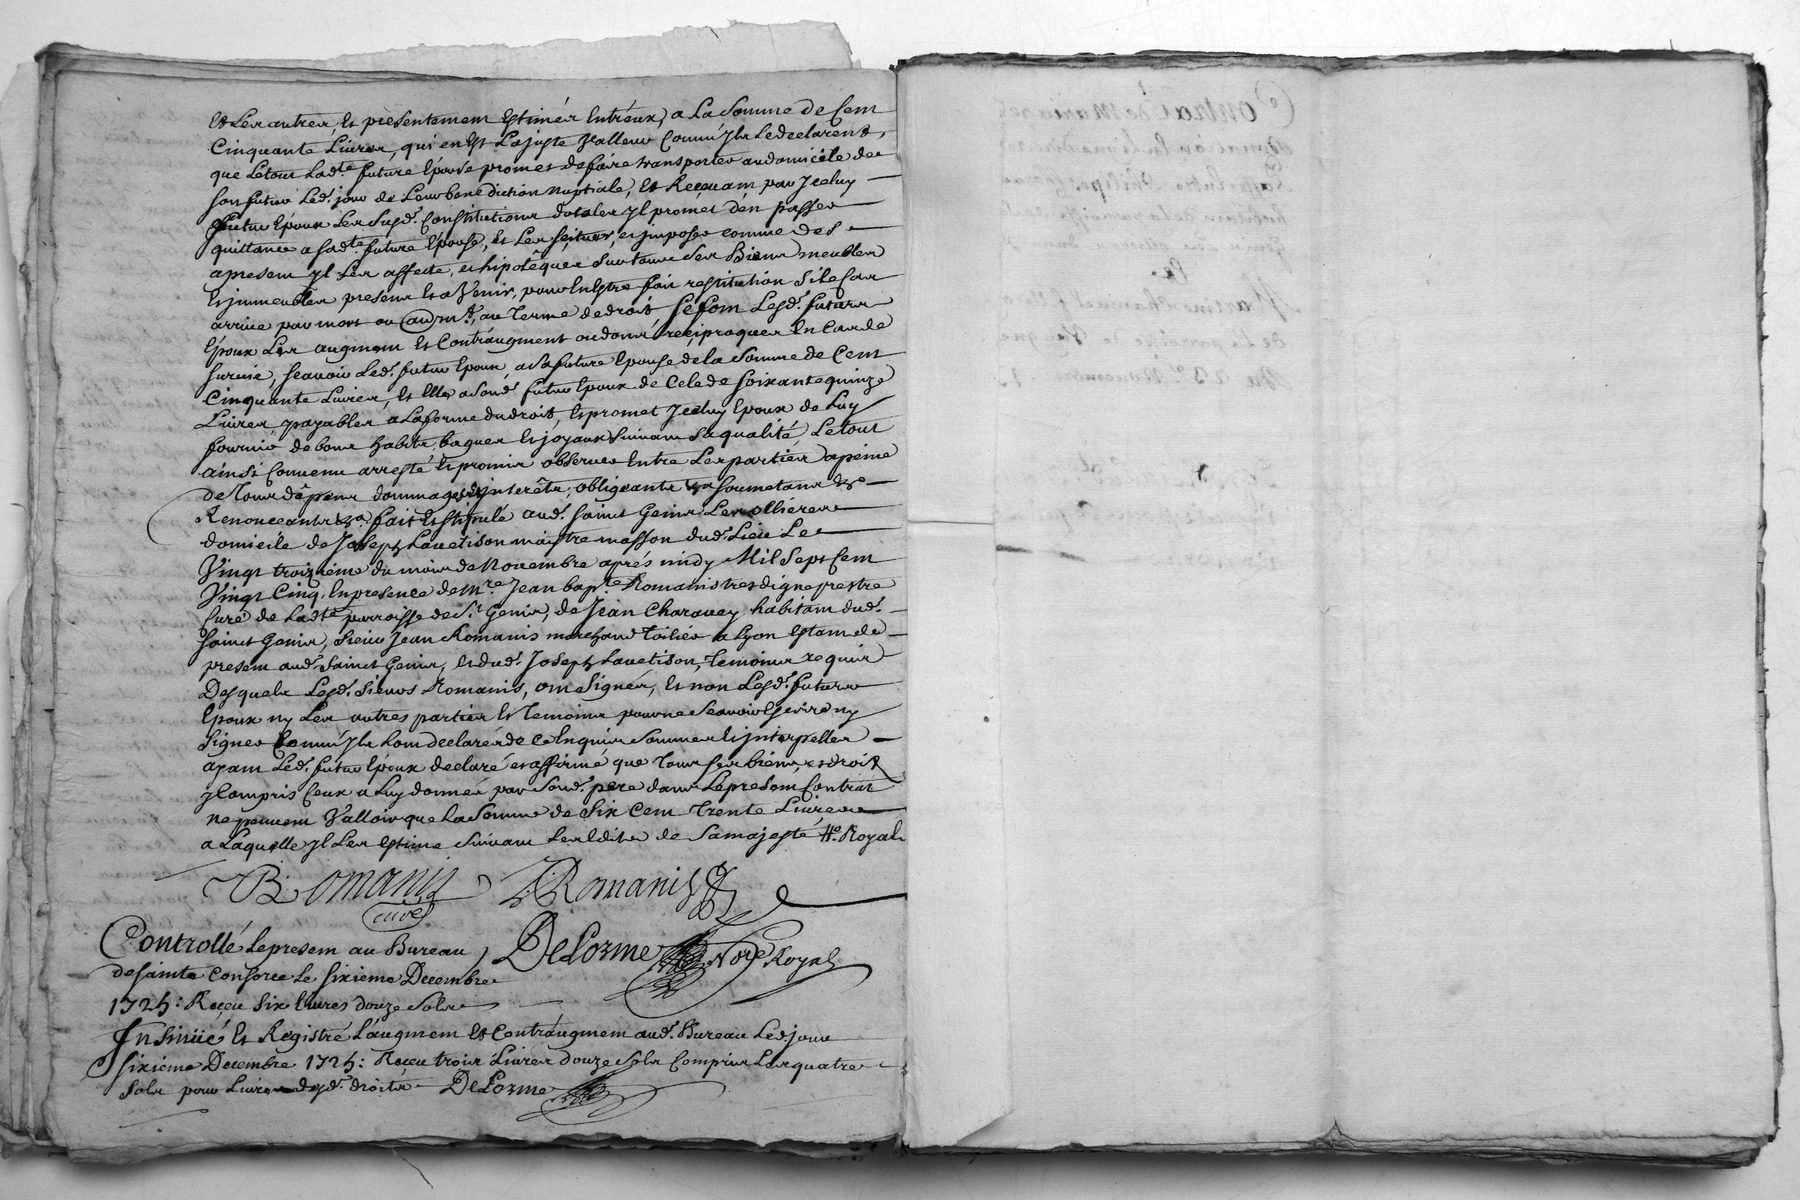 et Les autres, Et presentement Estimés Entréux, a La Somme de Cem
Cinquante Livres, qui en Est La juste Valleur Commé Ils Le declarent,
que Letout Ladte future Epouse promet de faire transporter audomicile de
son futur Led. jour de Leur benediction Nuptiale, Et Recevam par Jceluy
futur Epoux Les Susd. Constitutions dotales Jl promet d'en passer
quittance a sadte future Epouse, Et Les assituer, et jmposer comme des
apresem Jl Les affecte, et hipotêquer sur tous ses Biens meubles
Et jmmeubles presens Et a Venir, pour En Estre fait restitution si le Cas
arrive par mort ou autremt. au Terme de droit Se fom Lesd. futurs
Epoux Les augmem Et Contráugment ou donné reciproques En Cas de
survie, Scavoir Led. futur Epoux, a sa future Epouse de la Somme de Cent
Cinquante Livres, Et Elle a Sond. futur Epoux de Cele de soixantequinze
Livres payables a La forme du droit, Et promet Jceluy Epoux de Luy
fournir de bons habits bagues Et joyaux suivam sa qualité, Le tout
ainsi Convenu arresté Et promis observer Entre Les parties apeine
de Tous dépens dommages Et jnterêts, obligeants &a soumetans &a
Renonceants &a fait Et stipulé aud. Sainct Genis Les ollieres
domicile de Joseph Lavetison maistre masson dud. Lieu Le
Vingt troizieme du mois de Novembre aprés midy Mil Sept Cem
Vingt Cinq, En presence de Mre Jean bapte Romanis tresdigne prestre
Curé de Ladte parroisse de St Genis, de Jean Charavay habitam dud.
Sainct Genis, Sieur Jean Romanis marchand Toilier a Lyon Estam de
presem aud. Sainct Genis, et dud. Joseph Lavetison, Temoins requis
Desquels Lesd. Sieurs Romanis, om Signés, Et non Lesd. futurs
Epoux ny Les autres parties Et Temoins pour ne Scavoir Escrire ny
Signer Commé Ils hom declarés de ce Enquis Sommes Et jnterpellés
ayam Led. futur Epoux declaré et affirmé que Tous ses biens, et droits
y Compris Ceux a Luy donnés par Sond. pere dans Le presem Contrat
ne peuvem Valloir que La Somme de Six Cem Trente Livres
a Laquelle Jl Les Estime Suivam Les Edits de Sa majesté Hre. Royal
B. Romanis J. Romanis
curé
Controllé Le presem au Bureau Delorme Nore Royal
de sainte Consorce Le sixieme Decembre
1725: Reçeu six livres douze Sols
Jnsinüé Et Registré L'augmem Et Contráugmem aud. Bureau Led jour
sixieme Decembre 1725: Reçeu trois Livres douze Sols Compris Les quatre
Sols pour Livre desd. droits Delorme
Contrat de Mariage